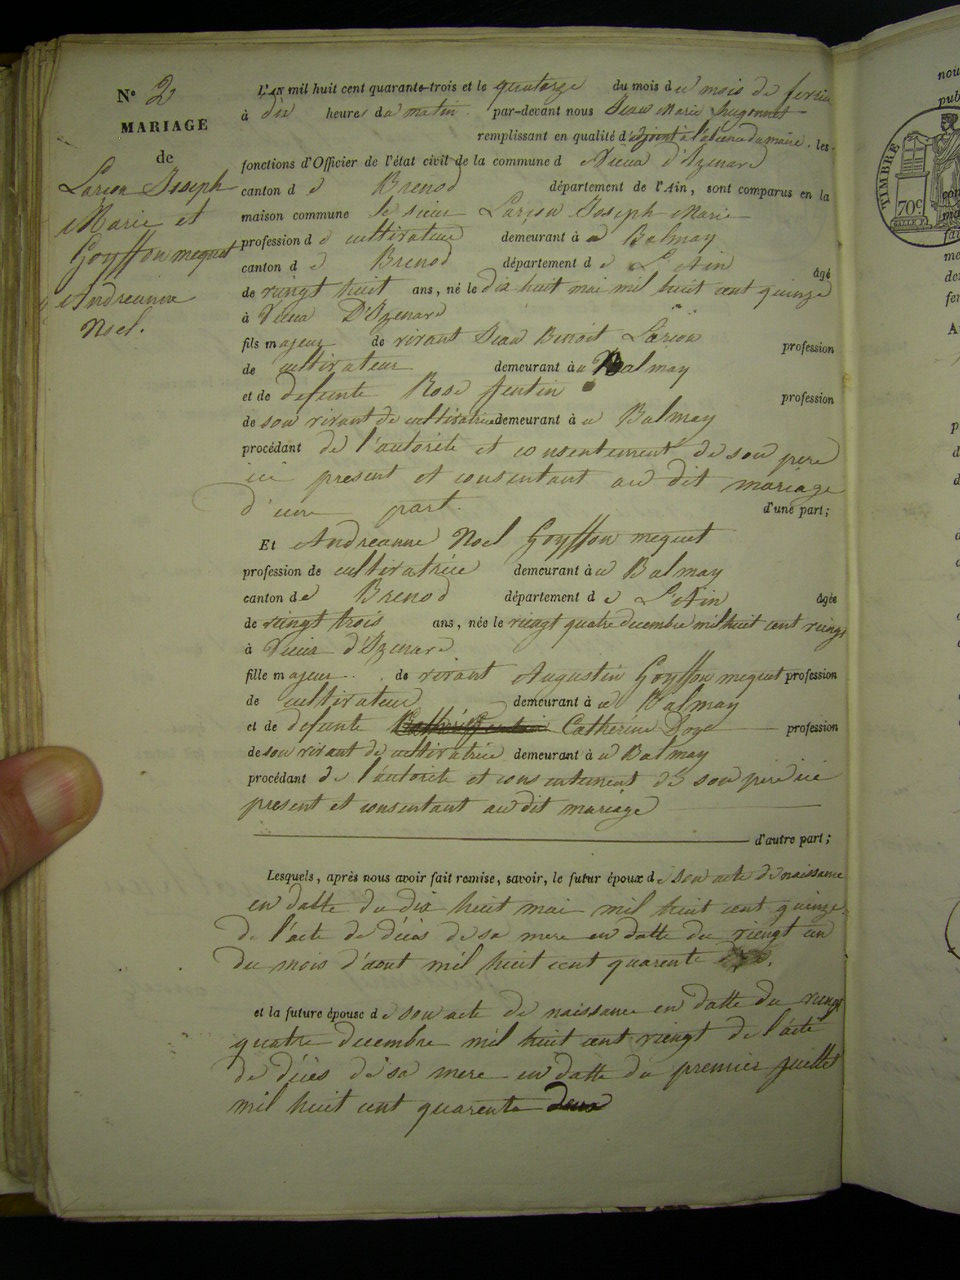 N° 2
MARIAGE
de
Larçon Joseph
Marie et
Goyffon mequet
Andréanne
Noel.
L'AN mil huit cent quarante-trois et le quatorze du mois d u mois de fevrier
à dix heures du matin par-devant nous Jean Marie Hugonnet
remplissant en qualité d'adjoint à l'absence du maire, les
fonctions d'Officier de l'état civil de la commune d Vieux d'Izenave
canton d e Brenod département de l'Ain, sont comparus en la
maison commune le sieur Larçon Joseph Marie
profession d e cultivateur demeurant à a Balmay
canton d e Brenod département d e L'Ain âgé
de vingt huit ans, né le dix huit mai mil huit cent quinze
à Vieux D'Izenave
fils majeur de vivant Jean Benoit Larçon profession
de cultivateur demeurant à a Balmay
et de defunte Rose profession
de son vivant de cultivatrice demeurant à a Balmay
procédant de l'autorité et consentement de son pere
ici present et consentant au dit mariage
d'une part. d'une part;
Et Andreanne Noel Goyffon mequet
profession de cultivatrice demeurant à a Balmay
canton d e Brenod département d e L'Ain âgée
de vingt trois ans, née le vingt quatre decembre mil huit cent vingt
à Vieux d'Izenave
fille majeur de vivant Augustin Goyffon mequet profession
de cultivateur demeurant à a Balmay
et de defunte Catherine profession
de son vivant de cultivatrice demeurant à a Balmay
procédant de l'autorité et consentement de son pere ici
present et consentant au dit mariage
d'autre part;
Lesquels, après nous avoir fait remise, savoir, le futur époux de son acte de naissance
en datte du dix huit mai mil huit cent quinze
de l'acte de décès de sa mere en datte du vingt un
du mois d'aout mil huit cent quarente
et la future épouse de son acte de naissance en datte du vingt
quatre decembre mil huit cent vingt de l'acte
de décès de sa mere en datte du premier juillet
mil huit cent quarente deux
TIMBRE
70 c.